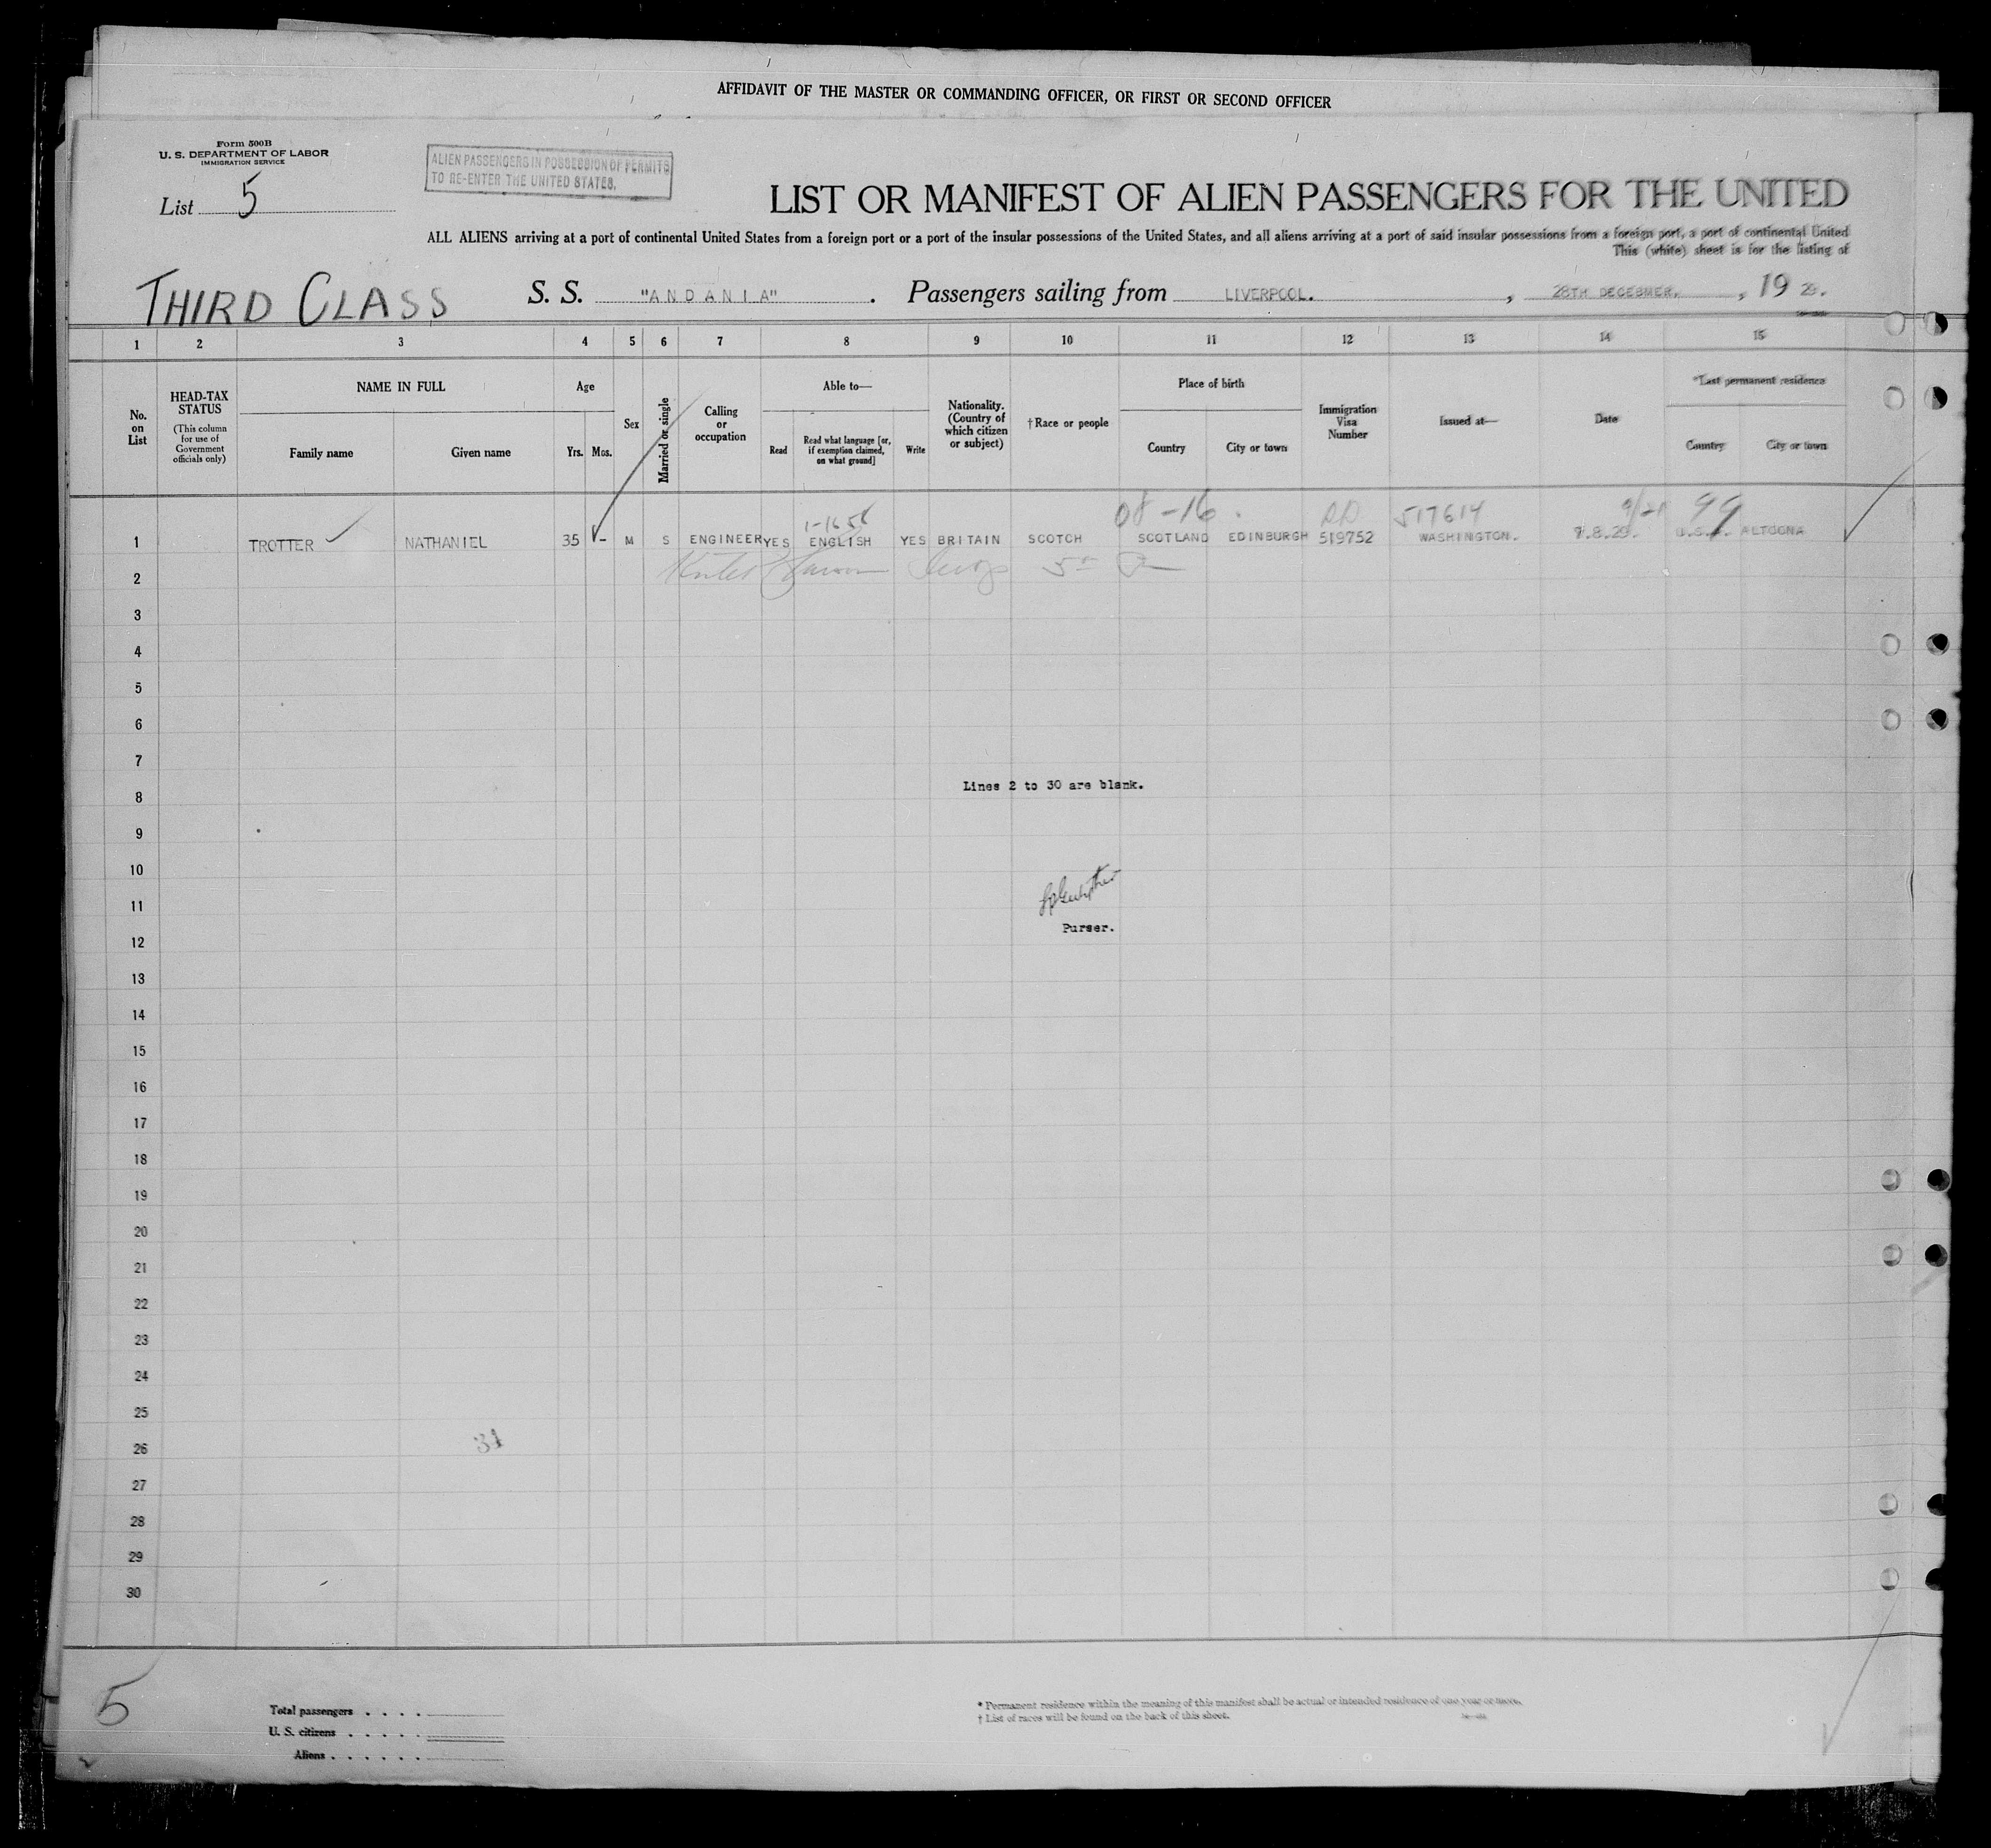 AFFIDAVIT OF THE MASTER OR COMMANDING OFFICER, OR FIRST OR SECOND OFFICER
Form 500B
U. S. DEPARTMENT OF LABOR
IMMIGRATION SERVICE
List 5
ALIEN PASSENGERS IN POSSESSION OF PERMITS
TO RE-ENTER THE UNITED STATES.
LIST OR MANIFEST OF ALIEN PASSENGERS FOR THE UNITED
ALL ALIENS arriving at a port of continental United States from a foreign port or a port of the insular possessions of the United States, and all aliens arriving at a port of said insular possessions from a foreign port, a port of continental United
This (white) sheet is for the listing of
THIRD CLASS S. S. "ANDANIA". Passengers sailing from LIVERPOOL. , 28TH DECEBMER. , 19
1 2 3 4 5 6 7 8 9 10 11 12 13 14 15
No. on List
HEAD-TAX STATUS
(This column for use of Government officials only)
NAME IN FULL
Family name Given name
Age
Yrs. Mos.
Sex
Married or single
Calling or occupation
Able to—
Read
Read what language [or, if exemption claimed, on what ground]
Write
Nationality. (Country of which citizen or subject)
†Race or people
Place of birth
Country City or town
Immigration Visa Number
Issued at—
Date
*Last permanent residence
Country City or town
08-16 517614 9/21 99
1 TROTTER NATHANIEL 35 - M S ENGINEER YES ENGLISH YES BRITAIN SCOTCH SCOTLAND EDINBURGH 519752 WASHINGTON. U.S.A. ALTOONA
2
3
4
5
6
7
Lines 2 to 30 are blank.
8
9
10
11
Purser.
12
13
14
15
16
17
18
19
20
21
22
23
24
25
31
26
27
28
29
30
5
Total passengers . . . .
U. S. citizens . . . . .
Aliens . . . . . .
* Permanent residence within the meaning of this manifest shall be actual or intended residence of one year or more.
† List of races will be found on the back of this sheet.